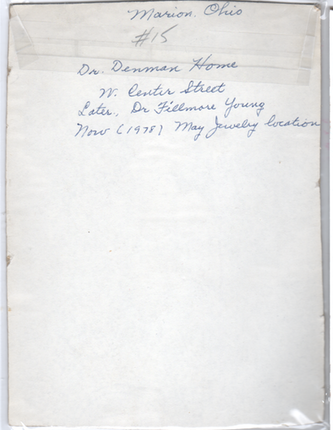 Marion, Ohio
#15
Dr. Denman Home
W. Center Street
Later, Dr Fillmore Young
Now (1978) May Jewelry location